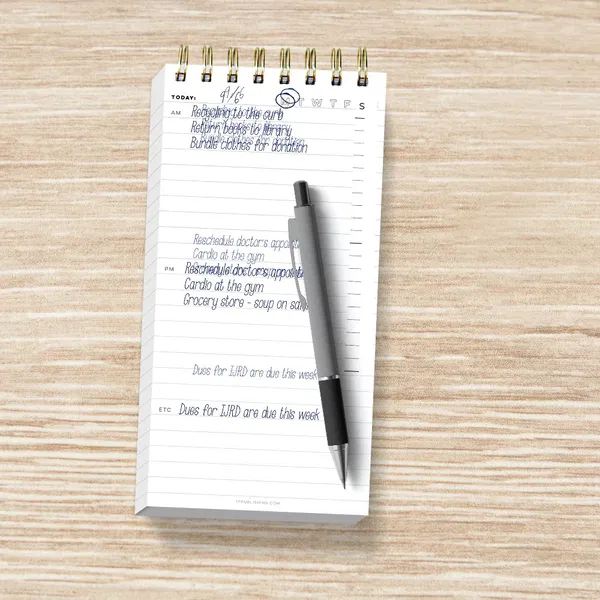 TODAY: T W T F S
AM Recycling to the curb
Return books to library
Bundle clothes for donation
Reschedule doctor's
Cardio at the gym
PM Reschedule doctor's
Cardio at the gym
Grocery store - soup on
Dues for IJRD are due this week
ETC Dues for IJRD are due this week